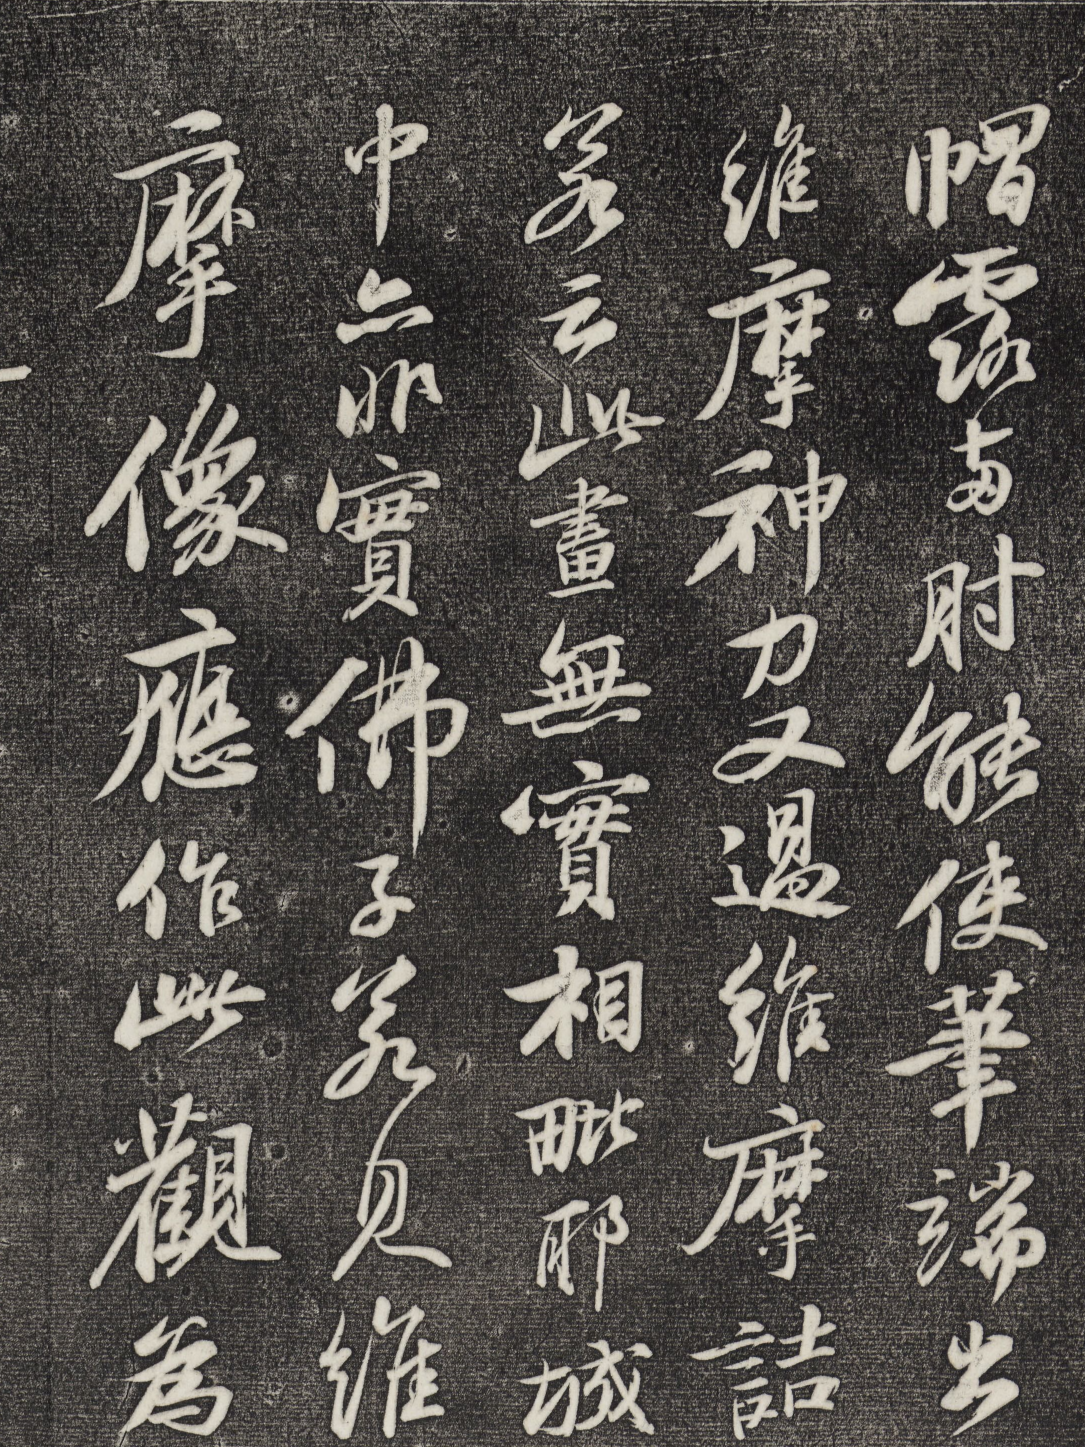 帽露两肘能使筆端出
維摩神力又過維摩詰
若云此畫無實相毗耶城
中亦非實佛子若見維
摩像應作此觀為